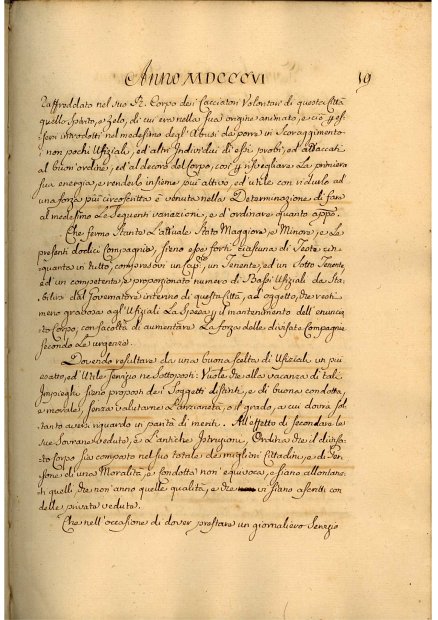 Anno MDCCCVI 19
Raffreddato nel suo R. Corpo dei Cacciatori Volontarj di questa Città
quello spirito, e zelo, di cui era nella sua origine animato, e ciò p es=
sersi introdotti nel medesimo degl'Abusi da porre in Scoraggimento
non pochi Ufiziali, ed altri Individui di essi probi, ed attaccati
al buon'ordine, ed al decoro del Corpo, così p risvegliare La primiera
sua energia, e renderlo insieme più attivo, ed utile con ridurlo ad
una forza più circoscritta è venuta nella Determinazione di fare
al medesimo Le seguenti variazioni, e d'ordinare quanto app.o
Che fermo stante L'attuale Stato Maggiore, e Minore, e Le
presenti dodici Compagnie, sieno esse forti ciascuna di Teste cin=
quanta in tutto, compresovi un Cap.o, un Tenente, ed un Sotto Tenente
ed un competente, e proporzionato numero di Bassi Ufiziali da sta=
bilirsi dal Governatore interno di questa Città, ad oggetto, che resti
meno gravosa agl'Ufiziali La spesa p il mantenimento dell'enuncia=
to Corpo, con facoltà di aumentare La forza delle divisate Compagnie
secondo Le urgenze.
Dovendo resultare da una buona scelta di Ufiziali un più
esatto, ed Utile servizio ne Sottoposti: Vuole che alla vacanza di tali
Impieghi sieno proposti dei Soggetti distinti, e di buona condotta,
e morale, senza valutarne L'anzianità, o il grado, a cui dovrà sol=
tanto aversi riguardo in parità di meriti. All'effetto di secondare Le
sue Sovrane vedute, e L'antiche Istruzioni, Ordina che il divisa=
to Corpo sia composto nel suo totale de migliori Cittadini, e di Per=
sone di una Moralità, e condotta non'equivoca, e siano allontana=
ti quelli che non'anno quelle qualità, e che vi siano ascritti con
delle private vedute.
Che nell'occasione di dover prestare un giornaliero Servizio